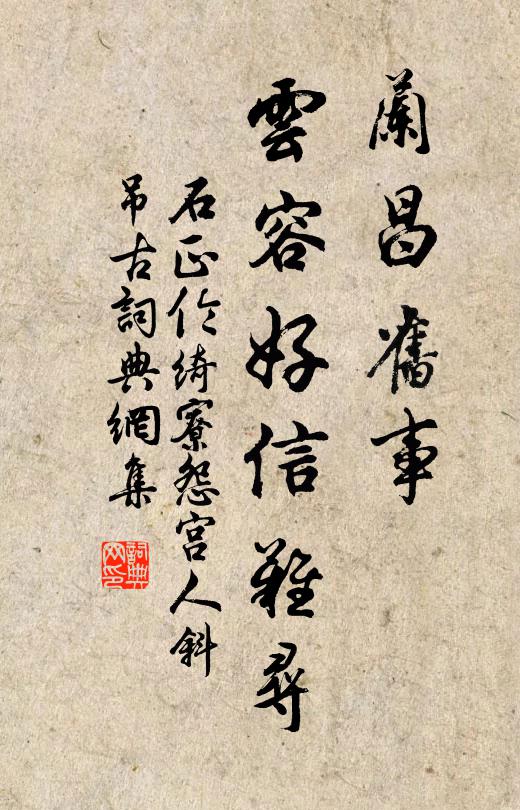 蘭昌舊事
雲容好信難尋
石正伦綺寮怨宮人斜
吊古詞典網集
詞典
网印